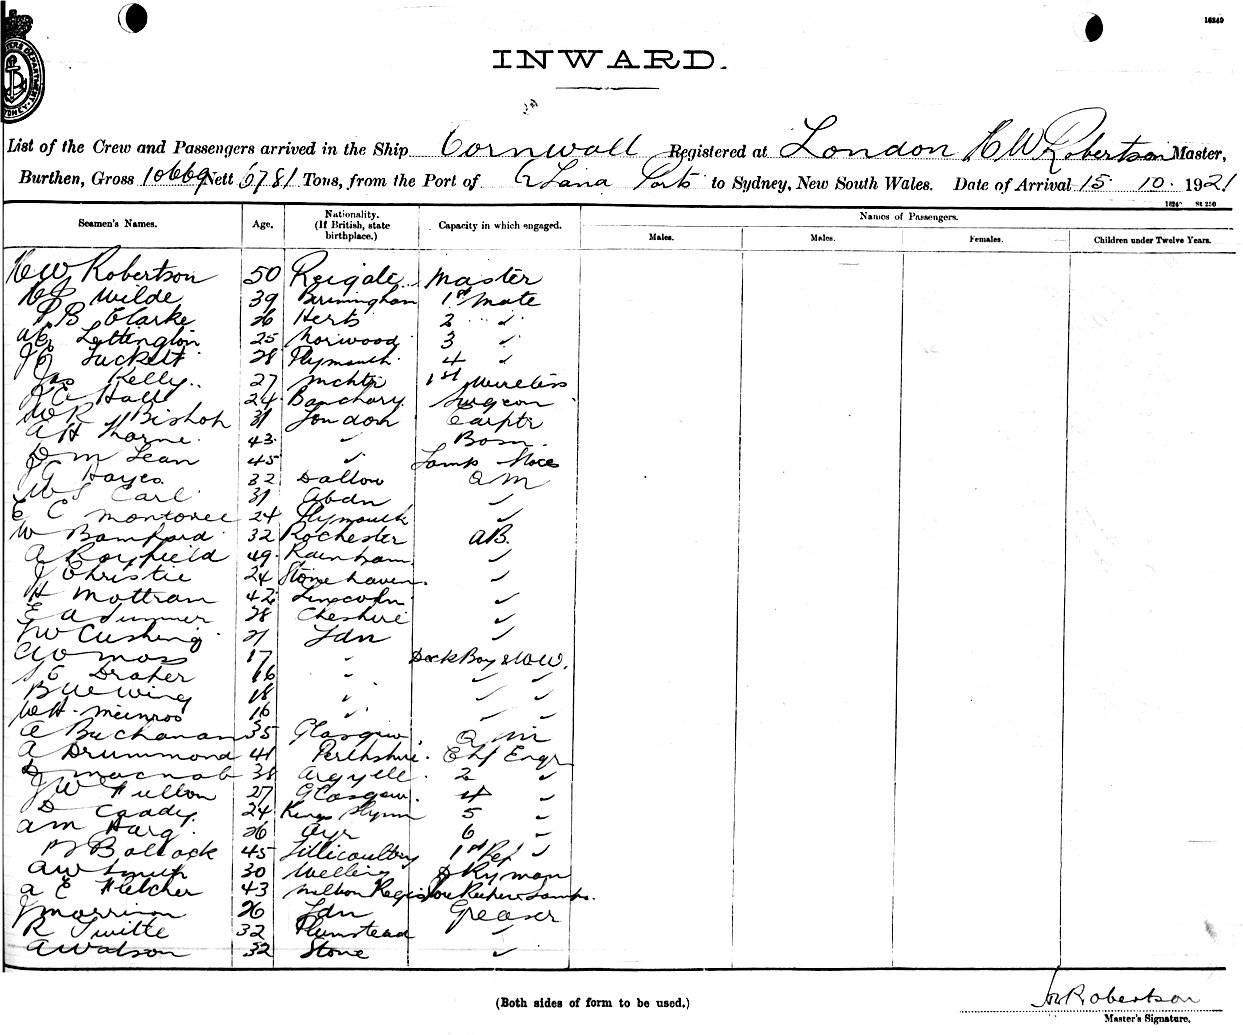 16249
INWARD.
List of the Crew and Passengers arrived in the Ship Cornwall Registered at London H W Robertson Master,
Burthen, Gross 10669 Nett 6781 Tons, from the Port of Ports to Sydney, New South Wales. Date of Arrival 15 10. 1921
Seamen's Names. Age. Nationality. (If British, state birthplace.) Capacity in which engaged. Names of Passengers.
Males. Males. Females. Children under Twelve Years.
H W Robertson 50 Reigate Master
Wilde 39 Birmingham 1st Mate
P B Clarke 26 Herts 2 "
Lettington 25 Norwood 3 "
Tuckett 28 Plymouth 4 "
Jas Kelly 27 1st Wireless
Hall 24 Banchory Surgeon
W R Bishop 31 London Carptr
A H Thorne 43 " Bosn.
D M Lean 45 " Lamps
Hayes 32 QM
W Earl 31 Abdn "
E C 24 Plymouth "
W Bamford 32 Rochester AB.
A Royfield 49 Rainham "
J Christie 24 Stonehaven "
H Mottram 42 Lincoln "
E A 28 Cheshire "
Cushing 21 Ldn "
Moss 17 " Deck Boy
Draper 16 " " "
B Uewing 18 " " "
W H 16 " " "
A Buchanan 35 Glasgow QM
A Drummond 41 Perthshire Chf Engr
D Macnab 38 Argyell 2 "
J W Fulton 27 Glasgow 4 "
D Caddy 24 Kings Lynn 5 "
A M Harg 26 Ayr 6 "
Bollock 45 Tillicoultry 1st Ref "
A W Smith 30 Welling
A E Fletcher 43 Milton Regis Lamps.
J Morrison 26 Ldn Greaser
R Twitte 32 Plumstead "
A Watson 32 Stone "
(Both sides of form to be used.)
Robertson
Master's Signature.